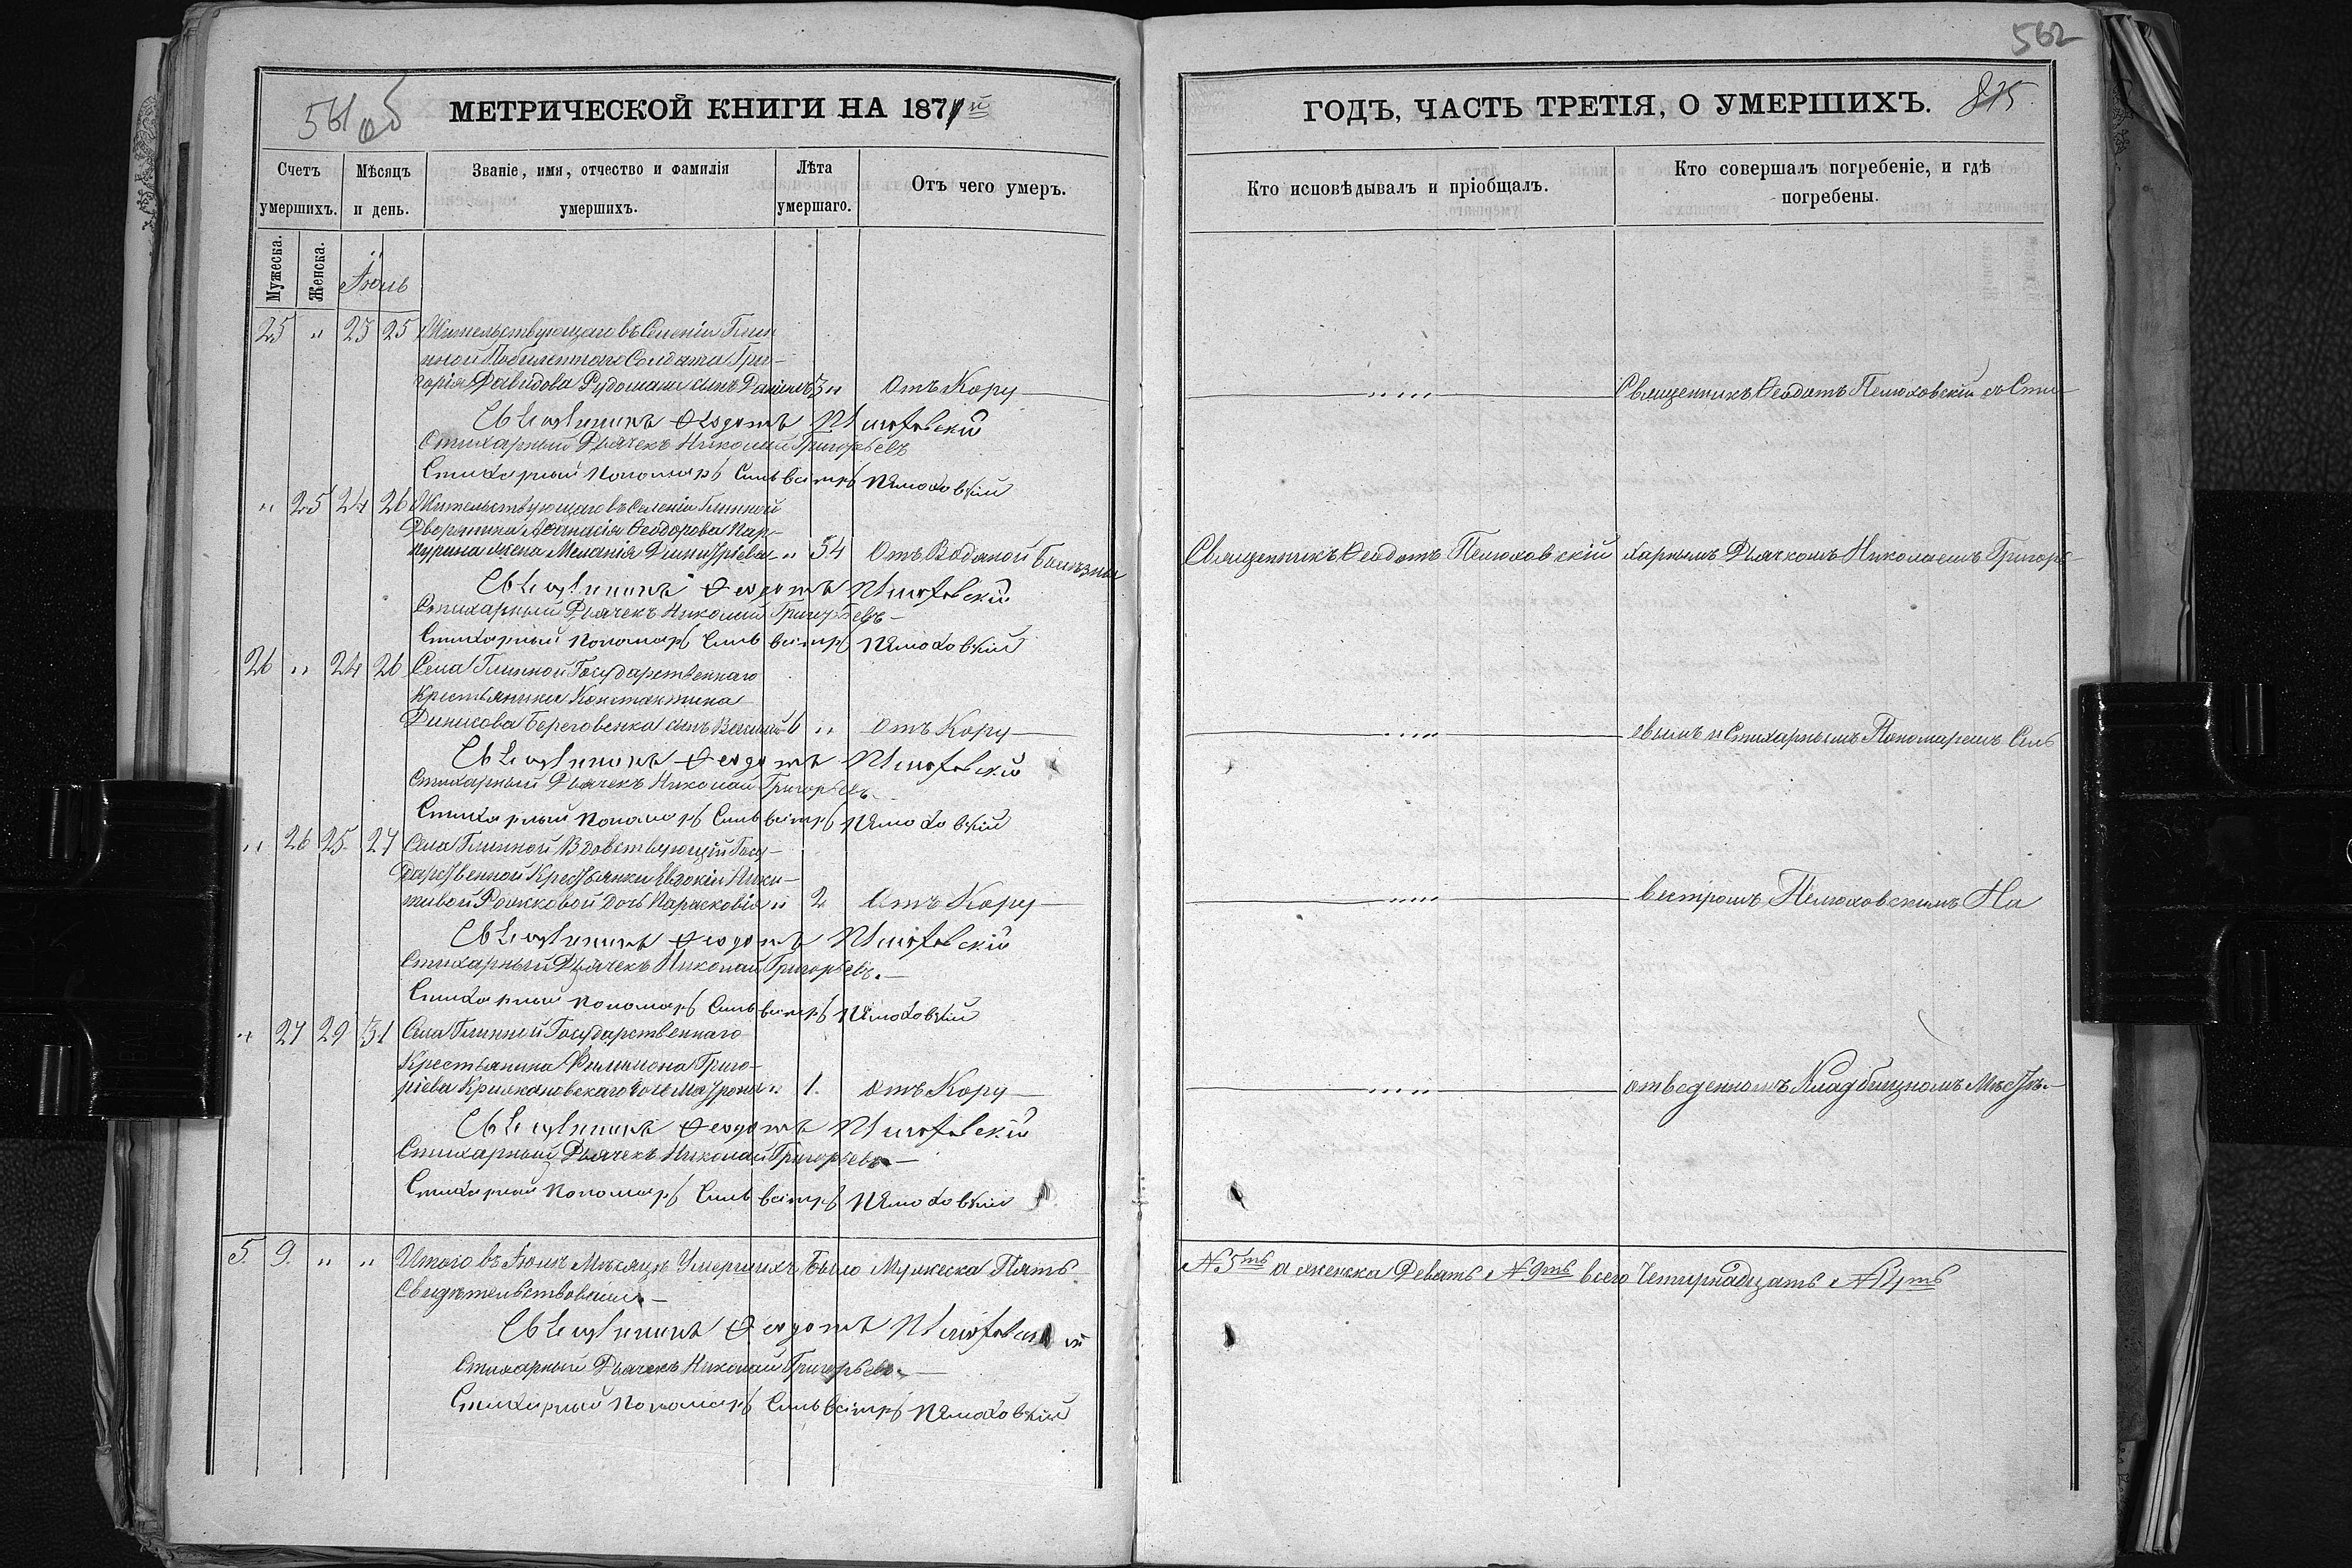 561 об
МЕТРИЧЕСКОЙ КНИГИ НА 1871й
Счетъ умершихъ.
Мѣсяцъ и день.
Званіе, имя, отчество и фамилія умершихъ.
Лѣта умершаго.
Отъ чего умеръ.
Мужеска.
Женска.
Іюль
25 " 23 25 Жительствующаго въ Селеніи Глин
ной Побилетнаго Солдата Гри-
горія Давидова сынъ Даніилъ 3 " Отъ Кору
Священникъ Феодотъ Пелюховскій
Стихарный Дьячекъ Николай Григорьевъ
Стихарный Пономарь Сильвестръ Пелюховскій
" 25 24 26 Жительствующаго въ Селеніи Глинной
Дворянина Афанасія Ѳеодорова
жена Меланія Димитріева " 54 Отъ Водяной Болѣзни
Священникъ Феодотъ Пелюховскій
Стихарный Дьячекъ Николай Григорьевъ
Стихарный Пономарь Сильвестръ Пелюховскій
26 " 24 26 Села Глинной Государственнаго
Крестьянина Константина
Динисова Береговенка сынъ Василій 6 " Отъ Кору
Священникъ Феодотъ Пелюховскій
Стихарный Дьячекъ Николай Григорьевъ
Стихарный Пономарь Сильвестръ Пелюховскій
" 26 25 27 Села Глинной Вдовствующій Госу-
дарственной Крестьянки Евдокіи Ники-
тивой дочь Парасковія " 2 Отъ Кору
Священникъ Феодотъ Пелюховскій
Стихарный Дьячекъ Николай Григорьевъ.
Стихарный Пономарь Сильвестръ Пелюховскій
" 27 29 31 Села Глинной Государственнаго
Крестьянина Филимона Григо-
ріева дочь Матрона " 1. Отъ Кору
Священникъ Феодотъ Пелюховскій
Стихарный Дьячекъ Николай Григорьевъ
Стихарный Пономарь Сильвестръ Пелюховскій
5. 9. " " Итого въ Іюлѣ Мѣсяцѣ Умершихъ Было Мужеска Пять
Свидѣтельствовали
Священникъ Феодотъ Пелюховскій
Стихарный Дьячекъ Николай Григорьевъ
Стихарный Пономарь Сильвестръ Пелюховскій
562
ГОДЪ, ЧАСТЬ ТРЕТІЯ, О УМЕРШИХЪ.
815
Кто исповѣдывалъ и пріобщалъ.
Кто совершалъ погребеніе, и гдѣ погребены.
Священникъ Ѳеодотъ Пелюховскій со Сти
Священникъ Ѳеодотъ Пелюховскій
харнымъ Дьячкомъ Николаемъ Григорь
евымъ и Стихарнымъ Пономаремъ Силь
вестромъ Пелюховскимъ На
отведенномъ Кладбищномъ Мѣстѣ.
№ 5ть а женска Девять № 9ть всего Четырнадцать № 14ть